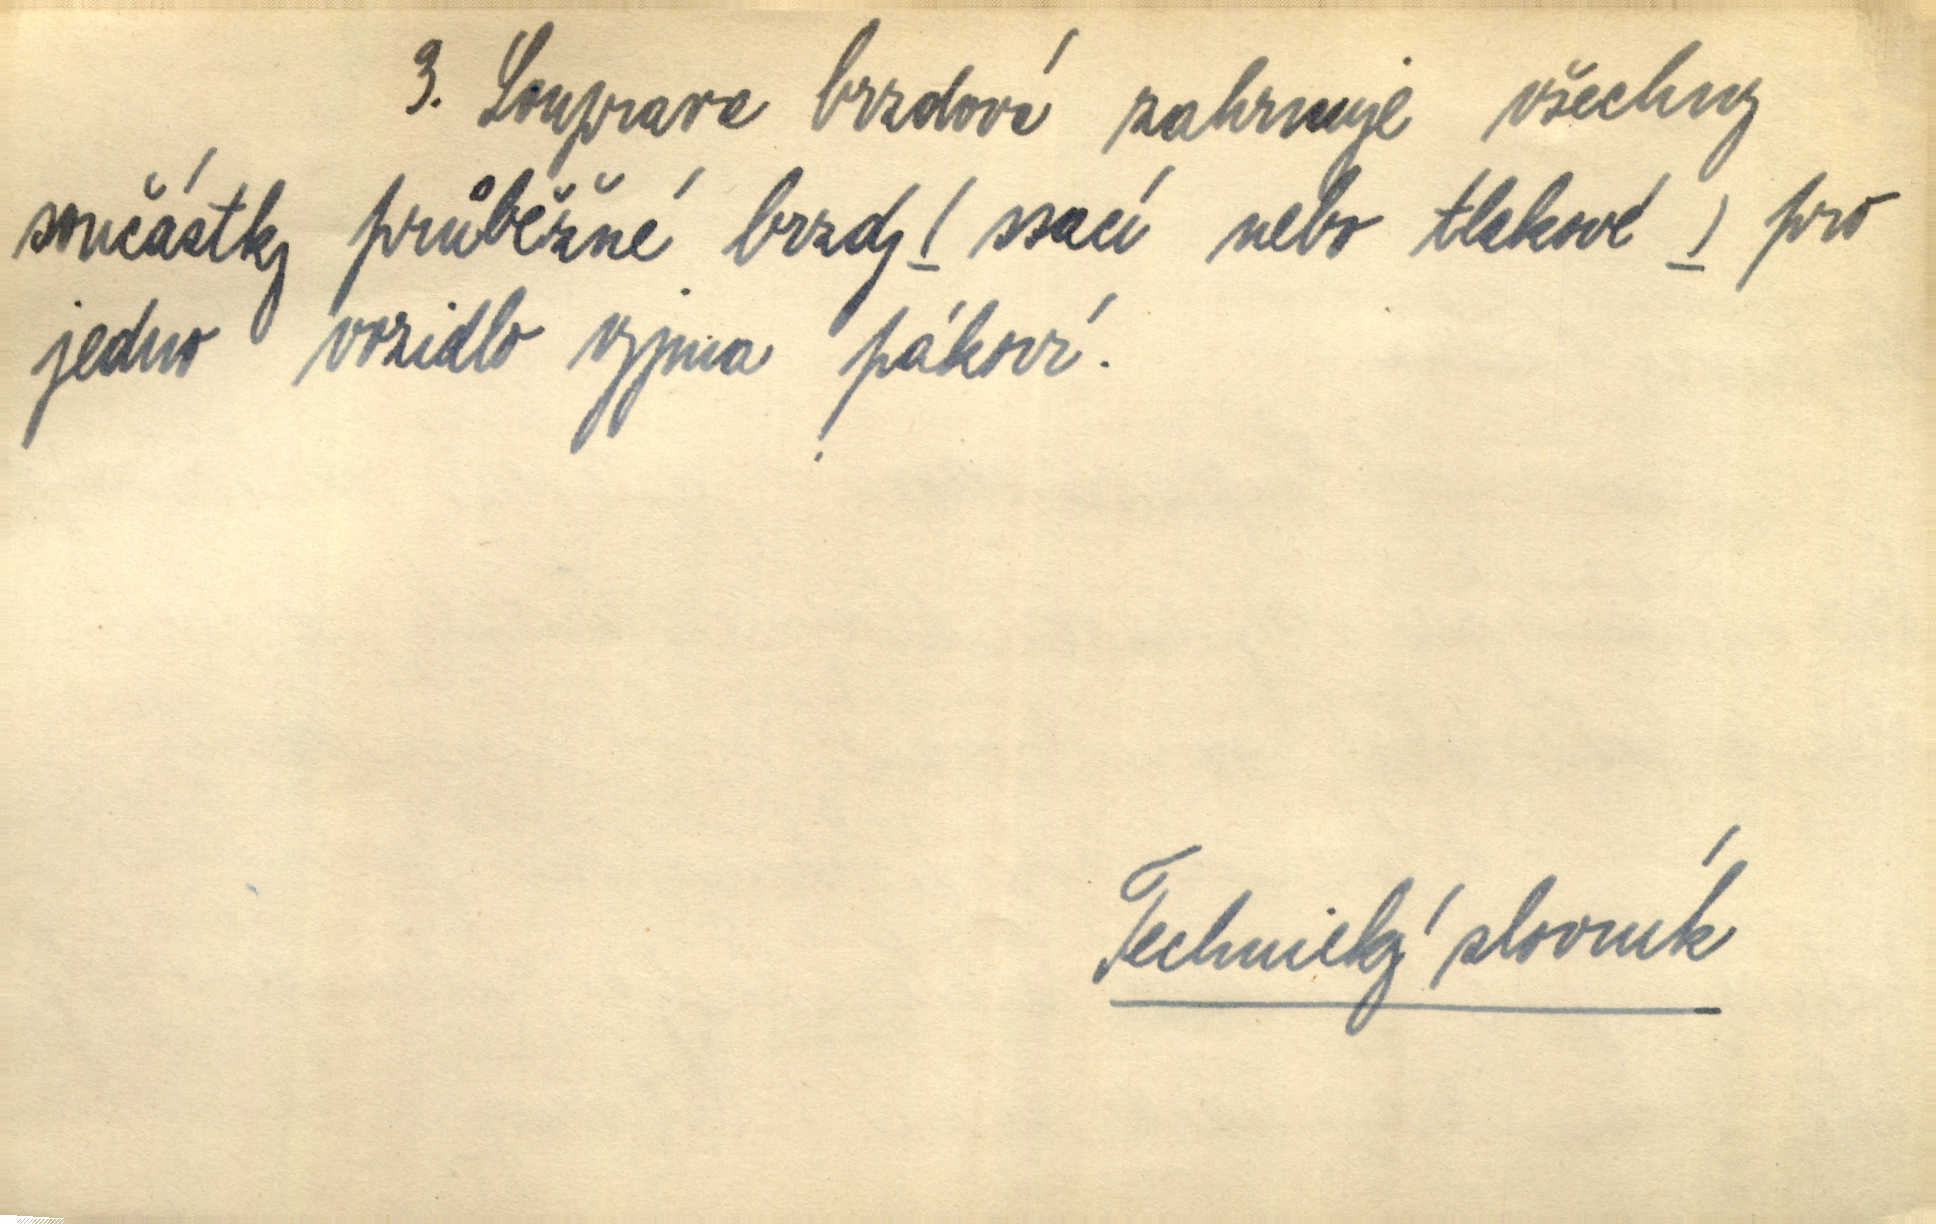 3. Souprava brzdová zahrnuje všechny
součástky průběžné brzdy ( ssací nebo tlakové ) pro
jedno vozidlo vyjma pákoví.
Technický slovník